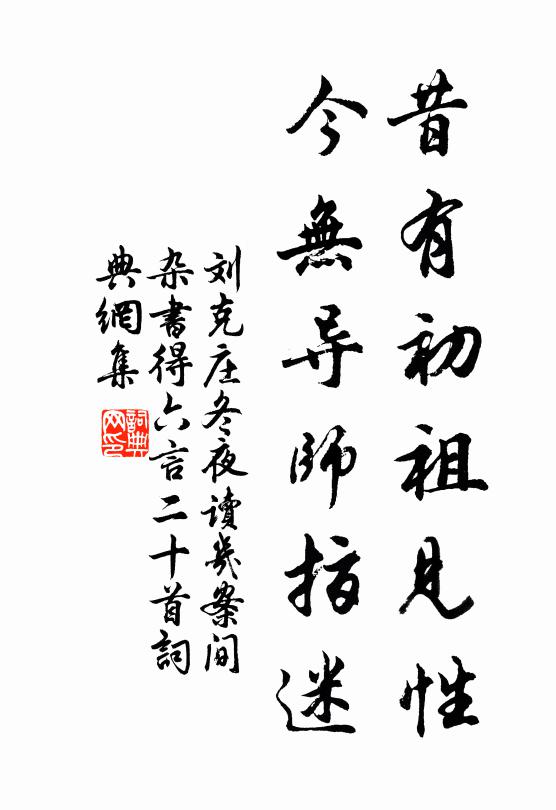 昔有初祖見性
今無导師指迷
刘克庄冬夜讀几案間
杂書得六言二十首詞
典網集
詞典网印